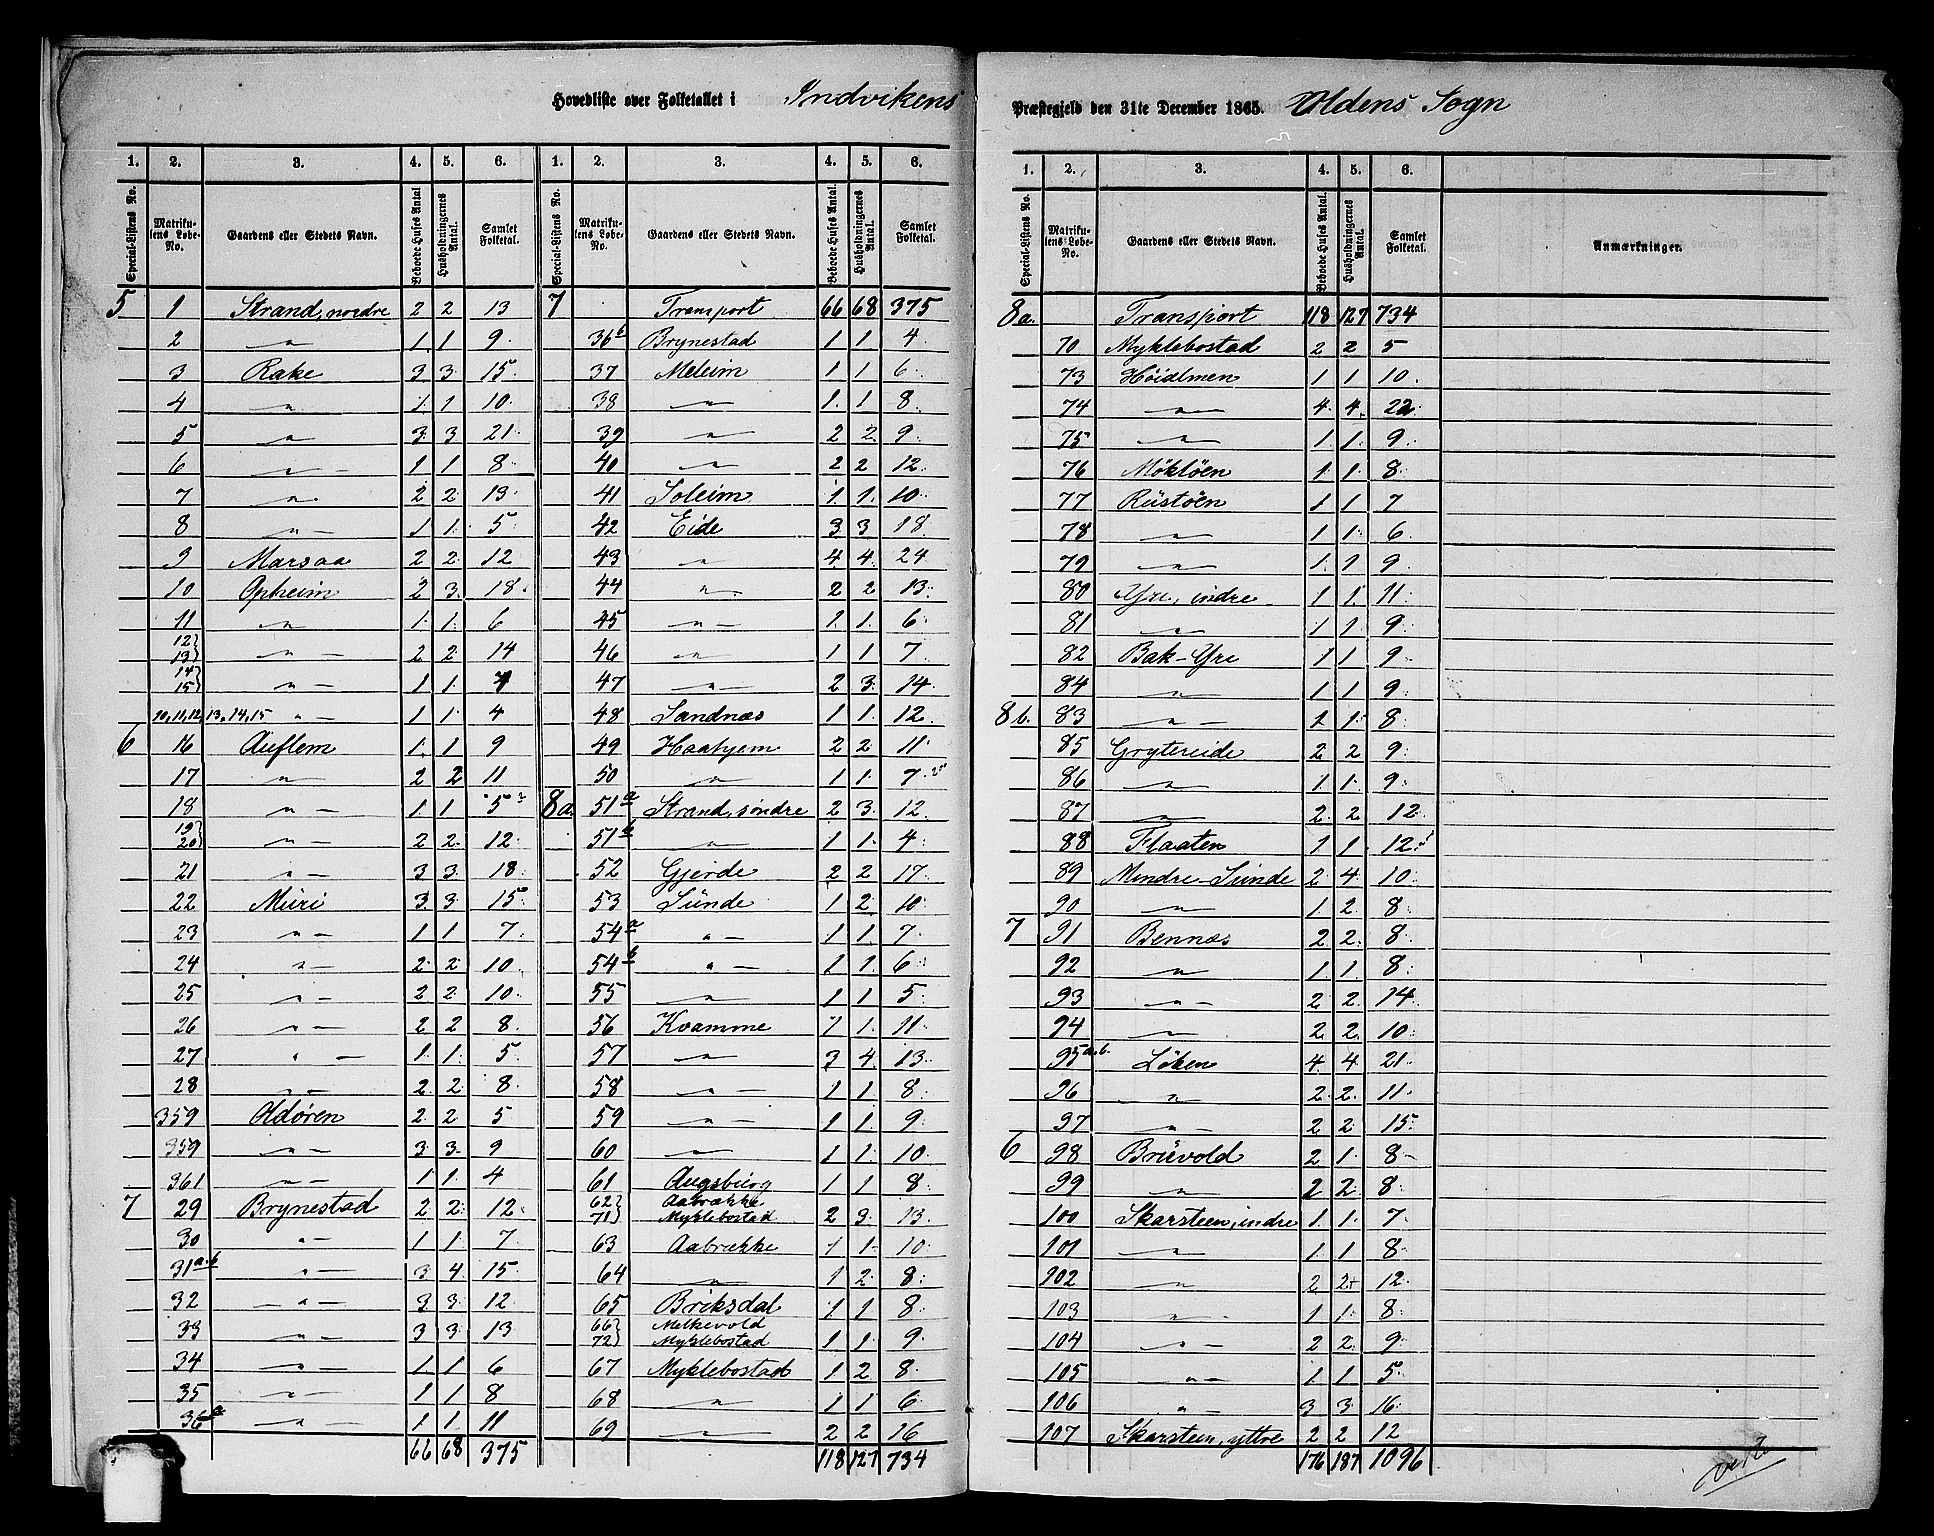 Hovedliste over Folketallet i Indvikens
1. 2. 3. 4. 5. 6. 1. 2. 3. 4. 5. 6.
Special-Listens No. Matrikulens Løbe-No. Gaardens eller Stedets Navn. Beboede Huses Antal Husholdningernes Antal. Samlet Folketal. Special-Listens No. Matrikulens Løbe-No. Gaardens eller Stedets Navn. Beboede Huses Antal. Husholdningernes Antal. Samlet Folketal.
5 1 Strand, nordre 2 2 13 7 Transport 66 68 375
2 " 1 1 9 36b Brynestad 1 1 4
3 Rake 3 3 15 37 Meleim 1 1 6
4 " 1 1 10 38 " 1 1 8
5 " 3 3 21 39 " 2 2 9
6 " 1 1 8 40 " 2 2 12
7 " 2 2 13 41 Soleim 1 1 10
8 " 1 1 5 42 Eide 3 3 18
9 Marsaa 2 2 12 43 " 4 4 24
10 Opheim 2 3 18 44 " 2 2 13
11 " 1 1 6 45 " 1 1 6
12 13 " 2 2 14 46 " 1 1 7
14 15 " 1 1 47 " 2 3 14
10, 11, 12, 13, 14, 15 " 1 1 4 48 Sandnæs 1 1 12
6 16 Auflem 1 1 9 49 Haahjem 2 2 11
17 " 2 2 11 50 " 1 1 7
18 " 1 1 5 8a. 51a Strand, søndre 2 3 12
19 20 " 2 2 12 51b " 1 1 4
21 " 3 3 18 52 Gjerde 2 2 17
22 Muri 3 3 15 53 Sunde 1 2 10
23 " 1 1 7 54a " 1 1 7
24 " 2 2 10 54b " 1 1 6
25 " 2 2 10 55 " 1 1 5
26 " 2 2 8 56 Kvamme 1 1 11
27 " 1 1 5 57 " 3 4 13
28 " 2 2 8 58 " 1 1 8
359 Oldøren 2 2 5 59 " 1 1 9
359 " 3 3 9 60 " 1 1 10
361 " 1 1 4 61 Augsburg 1 1 8
7 29 Brynestad 2 2 12 62 71 Aabrække Myklebostad 2 3 13
30 " 1 1 7 63 Aabrække 1 1 10
31a.b " 3 4 15 64 " 1 2 8
32 " 3 3 12 65 Briksdal 1 1 8
33 " 3 3 13 66 72 Melkevold Myklebostad 1 1 9
34 " 1 1 6 67 Myklebostad 1 2 8
35 " 1 1 8 68 " 1 1 6
36a " 1 1 11 69 " 2 2 16
66 68 375 118 127 734
Præstegjeld den 31te December 1865. Oldens Sogn
1. 2. 3. 4. 5. 6.
Special-Listens No. Matrikulens Løbe-No. Gaardens eller Stedets Navn. Beboede Huses Antal. Husholdningernes Antal. Samlet Folketal. Anmærkninger.
8a. Transport 118 127 734
70 Myklebostad 2 2 5
73 Høidlmen 1 1 10
74 " 4 4 22
75 " 1 1 9
76 Møkløen 1 1 8
77 Rustøen 1 1 7
78 " 1 1 6
79 " 1 1 9
80 Yre, indre 1 1 11
81 " 1 1 9
82 Bak-Yre 1 1 9
84 " 1 1 9
8b. 83 " 1 1 8
85 Grytereide 2 2 9
86 " 1 1 9
87 " 2 2 12
88 Flaaten 1 1 12
89 Mindre-Sunde 2 4 10
90 " 1 2 8
7 91 Bennæs 2 2 8
92 " 1 1 8
93 " 2 2 14
94 " 2 2 10
95a.b. Løken 4 4 21
96 " 2 2 11
97 " 2 2 15
6 98 Bruvold 2 1 8
99 " 2 2 8
100 Skarsteen, indre 1 1 7
101 " 1 1 8
102 " 2 2 12
103 " 1 1 8
104 " 2 2 9
105 " 1 1 5
106 " 3 3 16
107 Skarsteen, yttre 2 2 12
176 187 1096